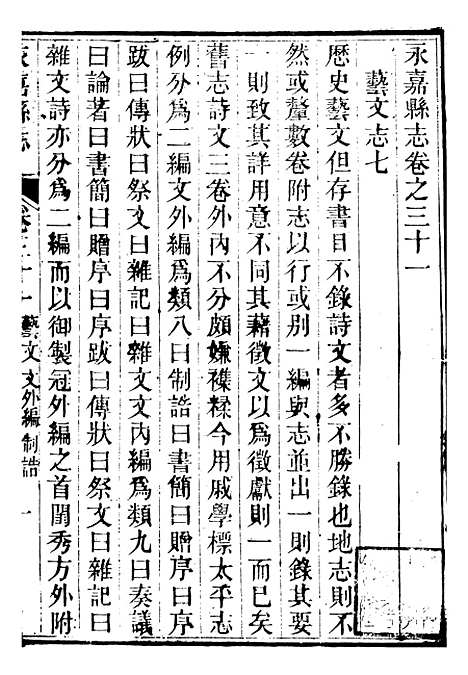 永嘉縣志卷之三十一
藝文志七
歷史藝文但存書目不錄詩文者多不勝錄也地志則不
然或釐數卷附志以行或别一編與志並出一則錄其要
一則致其詳用意不同其藉徵文以爲徵獻則一而已矣
舊志詩文三卷外內不分頗嫌襍糅今用戚學標太平志
例分爲二編文外編爲類八曰制誥曰書簡曰贈序曰序
跋曰傳狀曰祭文曰雜記曰雜文文內編爲類九曰奏議
曰論著曰書簡曰贈序曰序跋曰傳狀曰祭文曰雜記曰
雜文詩亦分爲二編而以御製冠外編之首閨秀方外附
永嘉縣志
卷三十一 藝文 文外編 制誥 一